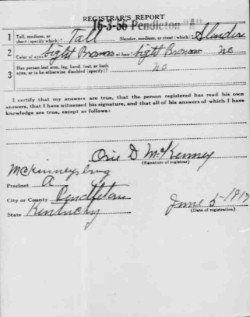 REGISTRAR'S REPORT
16-3-56 Pendleton
1 Tall, medium, or short (specify which)? Tall Slender, medium, or stout (which)? Slender
2 Color of eyes? Light Brown Color of hair? Light Brown Bald? No
3 Has person lost arm, leg, hand, foot, or both eyes, or is he otherwise disabled (specify)? No
I certify that my answers are true, that the person registered has read his own answers, that I have witnessed his signature, and that all of his answers of which I have knowledge are true, except as follows:
Orie D. McKenney
(Signature of registrar)
McKinneysburg
Precinct A
City or County Pendleton
State Kentucky
June 5-1917
(Date of registration)